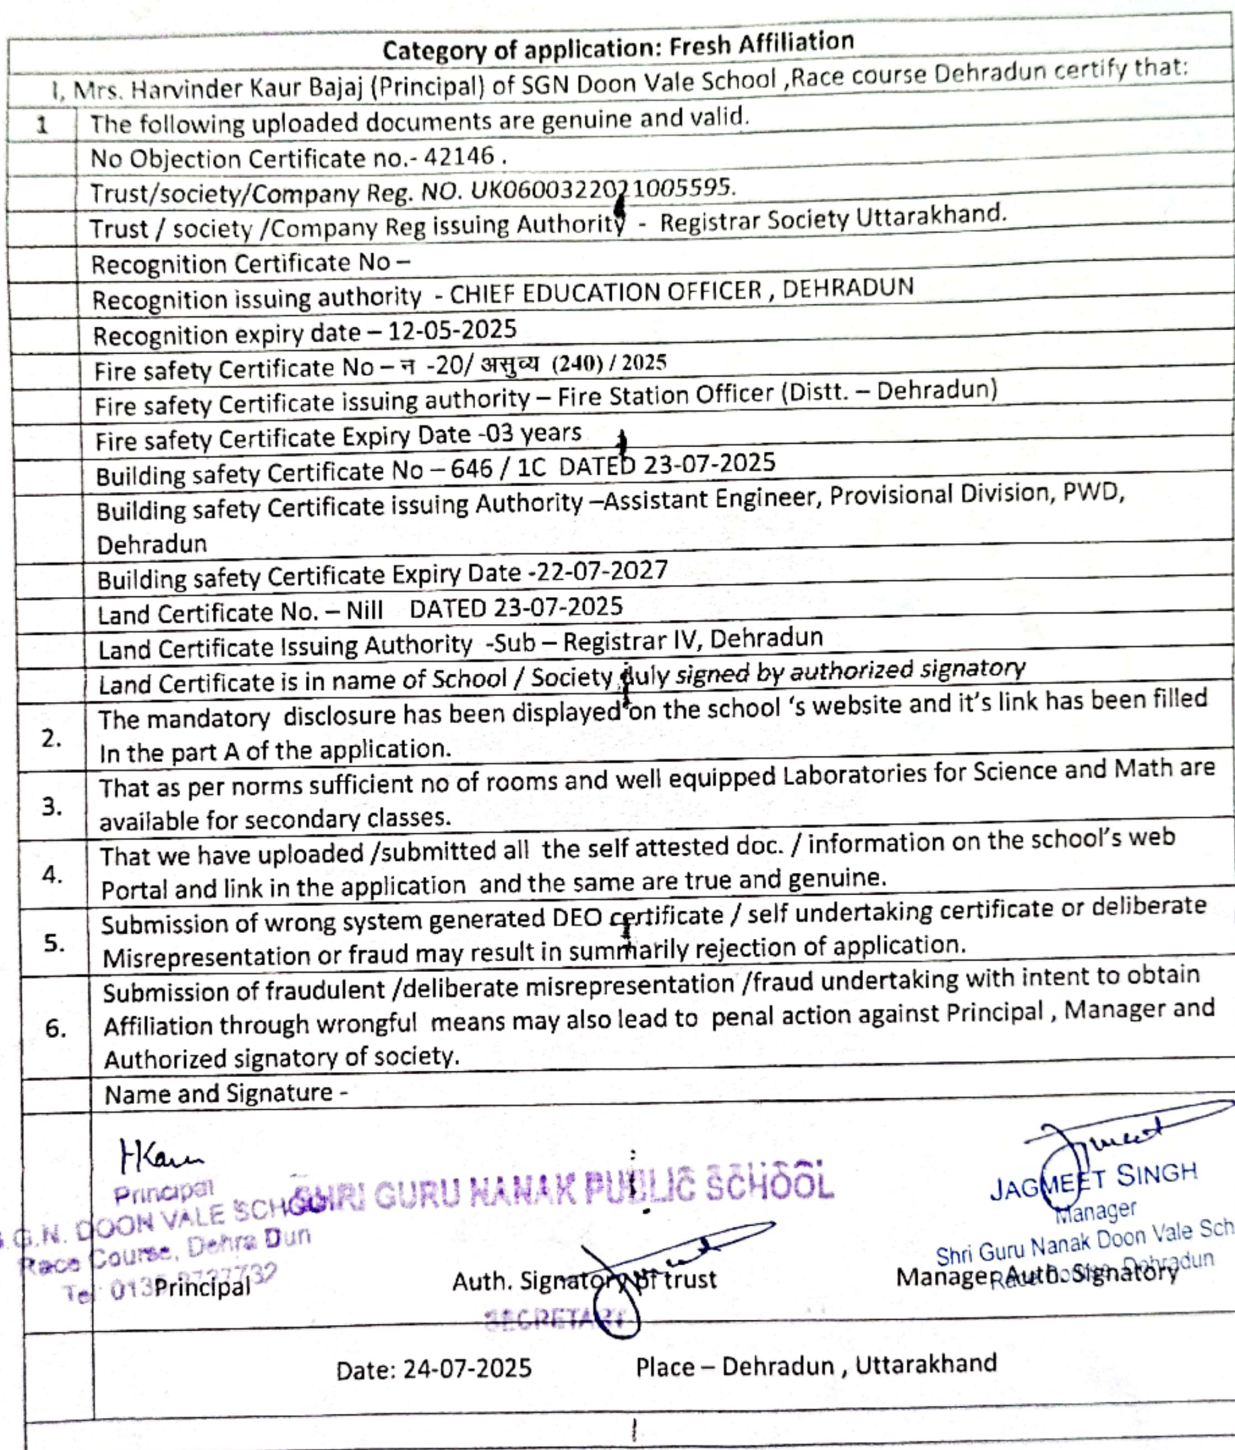 Category of application: Fresh Affiliation
I, Mrs. Harvinder Kaur Bajaj (Principal) of SGN Doon Vale School ,Race course Dehradun certify that:
1 The following uploaded documents are genuine and valid.
No Objection Certificate no.- 42146 .
Trust/society/Company Reg. NO. UK0600322021005595.
Trust / society /Company Reg issuing Authority - Registrar Society Uttarakhand.
Recognition Certificate No –
Recognition issuing authority - CHIEF EDUCATION OFFICER , DEHRADUN
Recognition expiry date – 12-05-2025
Fire safety Certificate No – न -20/ असुव्य (240) / 2025
Fire safety Certificate issuing authority – Fire Station Officer (Distt. – Dehradun)
Fire safety Certificate Expiry Date -03 years
Building safety Certificate No – 646 / 1C DATED 23-07-2025
Building safety Certificate issuing Authority –Assistant Engineer, Provisional Division, PWD,
Dehradun
Building safety Certificate Expiry Date -22-07-2027
Land Certificate No. – Nill DATED 23-07-2025
Land Certificate Issuing Authority -Sub – Registrar IV, Dehradun
Land Certificate is in name of School / Society duly signed by authorized signatory
2. The mandatory disclosure has been displayed on the school 's website and it's link has been filled
In the part A of the application.
3. That as per norms sufficient no of rooms and well equipped Laboratories for Science and Math are
available for secondary classes.
4. That we have uploaded /submitted all the self attested doc. / information on the school's web
Portal and link in the application and the same are true and genuine.
5. Submission of wrong system generated DEO certificate / self undertaking certificate or deliberate
Misrepresentation or fraud may result in summarily rejection of application.
6. Submission of fraudulent /deliberate misrepresentation /fraud undertaking with intent to obtain
Affiliation through wrongful means may also lead to penal action against Principal , Manager and
Authorized signatory of society.
Name and Signature -
HKaur
Principal
S.G.N. DOON VALE SCHOOL
Race Course, Dehra Dun
Tel 0135
Principal
SHRI GURU NANAK PUBLIC SCHOOL
Auth. Signatory of trust
SECRETARY
JAGMEET SINGH
Manager
Shri Guru Nanak Doon Vale Sch
Race Course, Dehradun
Manager Auth. Signatory
Date: 24-07-2025 Place – Dehradun , Uttarakhand